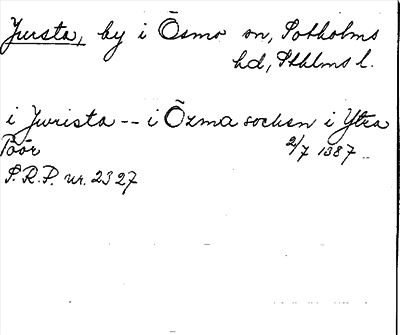 Jursta, by i Ösmo sn, Sotholms
hd, Sthlms l.
i Jwrista -- i Özma socken i Ytra
Töör 2/7 1387
S.R.P. nr. 2327